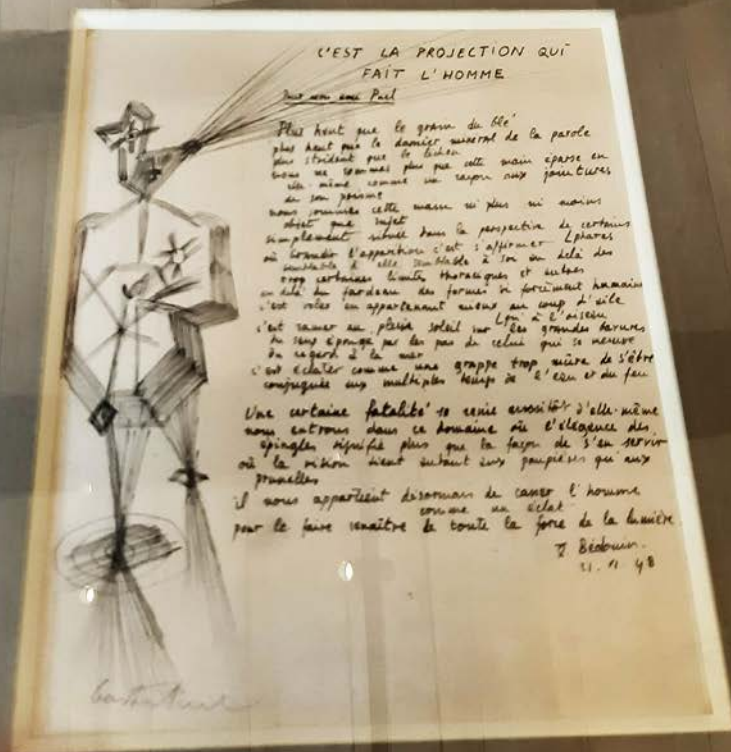 C'EST LA PROJECTION QUI
FAIT L'HOMME
Pour mon ami Puel
Plus haut que le grain du blé
plus haut que le damier minéral de la parole
plus strident que le lichen
nous ne sommes plus que cette main éparse en
elle-même comme un rayon aux jointures
de son
nous sommes cette masse ni plus ni moins
objet que sujet
simplement située dans la perspective de certains
où brandir l'apparition c'est s'affirmer [phares
semblable à elle semblable à soi au delà des
trop certaines limites thoraciques et autres
au delà du fardeau des formes si forcément humaines
c'est voler en appartenant mieux au coup d'aile
[qu'à l'oiseau
c'est ramer au plein soleil sur les grandes
du sang épongé par les pas de celui qui se mesure
du regard à la mer
c'est éclater comme une grappe trop mûre de s'être
conjuguée aux multiples temps de l'eau et du feu
Une certaine fatalité se renie aussitôt d'elle-même
nous entrons dans ce domaine où l'élégance des
épingles signifie plus que la façon de s'en servir
où la vision tient autant aux paupières qu'aux
prunelles
il nous appartient désormais de casser l'homme
comme un éclat
pour le faire renaître de toute la force de la lumière
Bédouin.
11 48
Gaston Puel